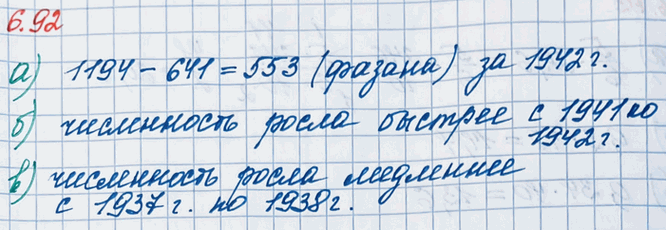 6.92
а) 1194 - 641 = 553 (фазана) за 1942 г.
б) численность росла быстрее с 1941 по
1942 г.
в) численность росла медленнее
с 1937 г. по 1938 г.